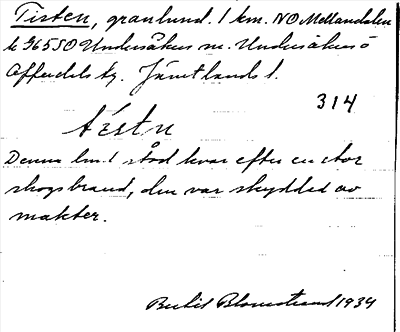 Tisten, granlund. 1 km. NO Mellandalen
k 36550 Undersåkers sn. Undersåkers o
Offerdals tg. Jämtlands l.
314
Denna lund stod kvar efter en stor
skogsbrand, den var skyddad av
makter.
Bertil Blomstrand 1934